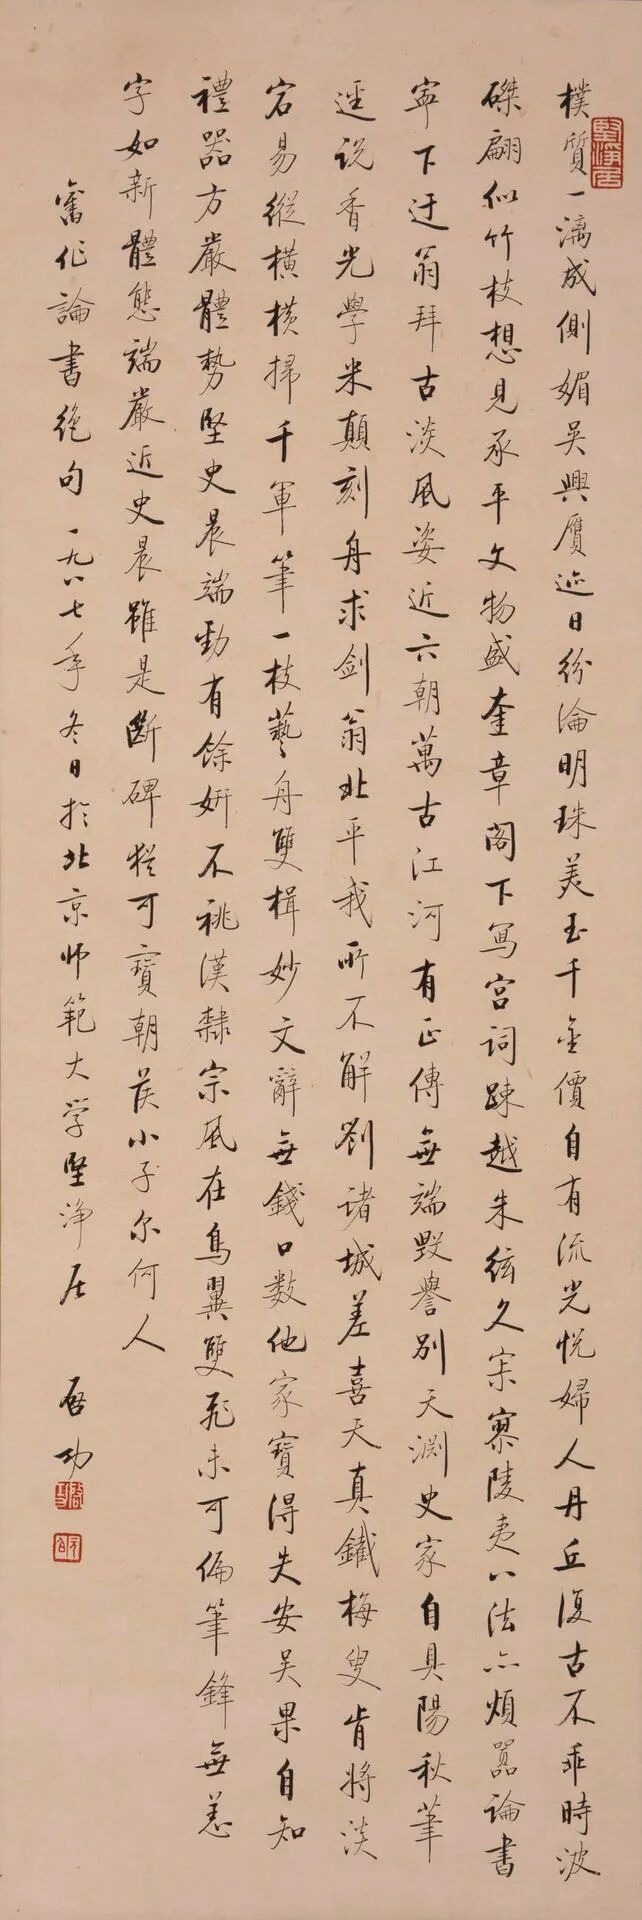 樸質一漓成側媚吳興贋迹日紛淪明珠美玉千金價自有流光悅婦人丹丘復古不乖時波
磔翩似竹枝想見承平文物盛奎章閣下寫宮詞疎越朱絃久寂寥陵夷八法亦煩嚣論書
寧下迂翁拜古淡風姿近六朝萬古江河有正傳無端毀譽別天淵史家自具陽秋筆
逕说香光學米顛刻舟求劍翁北平我所不解劉诸城差喜天真鐵梅叟肯將淡
宕易縱橫橫掃千軍筆一枝藝舟雙楫妙文辭無錢口數他家寶得失安吳果自知
禮器方嚴體勢堅史晨端勁有馀妍不祧漢隸宗風在鳥翼雙飛未可偏筆鋒無恙
字如新體態端嚴近史晨雖是斷碑猶可寶朝侯小子尔何人
舊作論書絕句一九八七年冬日於北京师範大学堅净居
启功
堅净居
启功
元白